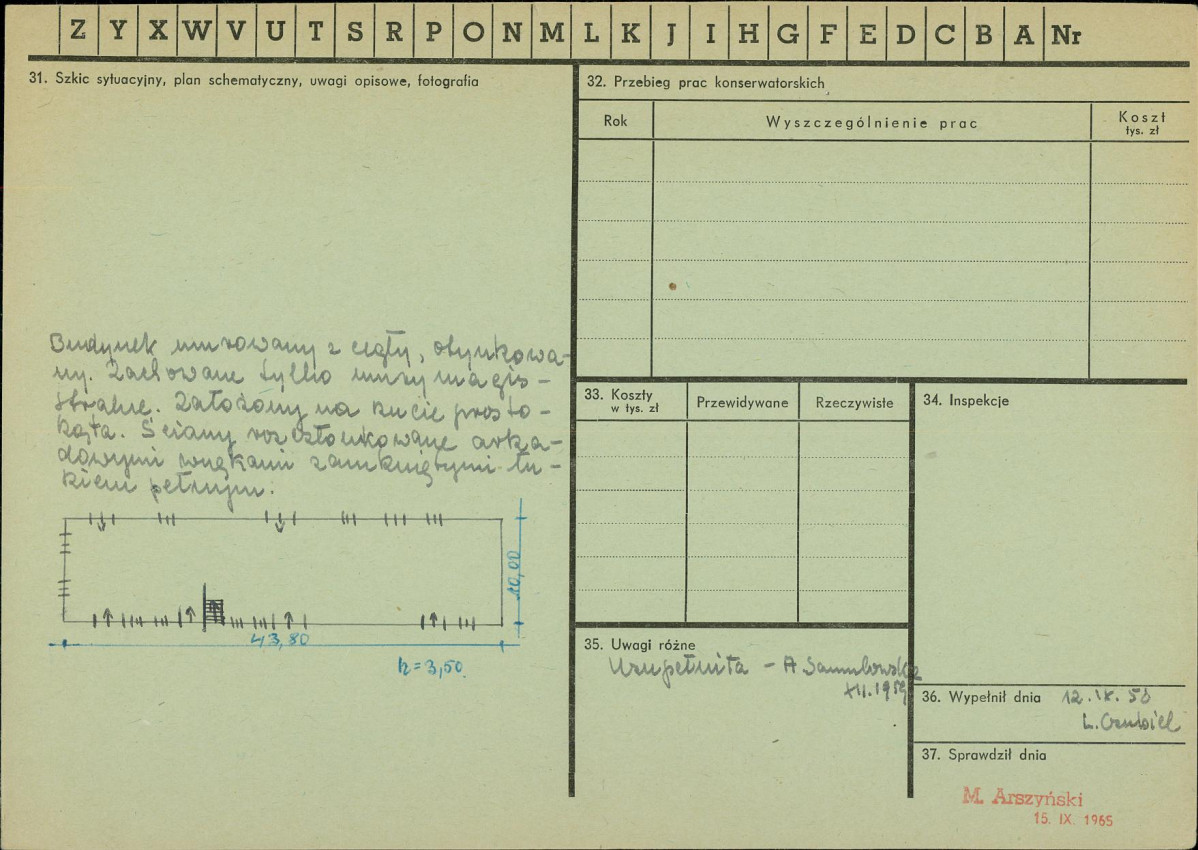 Z Y X W V U T S R P O N M L K J I H G F E D C B A Nr
31. Szkic sytuacyjny, plan schematyczny, uwagi opisowe, fotografia
Budynek murowany z cegły, otynkowa-
ny. Zachowane tylko mury magis-
tralne. Założony na rzucie prosto-
kąta. Ściany rozczłonkowane arka-
dowymi wnękami zamkniętymi łu-
kiem pełnym.
10,00
43,80
h=3,50
32. Przebieg prac konserwatorskich
Rok Wyszczególnienie prac Koszt
tys. zł
33. Koszty
w tys. zł
Przewidywane Rzeczywiste
34. Inspekcje
35. Uwagi różne
Uzupełniła - A
XII.1959
36. Wypełnił dnia 12.IX.
L. Czubiel
37. Sprawdził dnia
M. Arszyński
15. IX. 1965